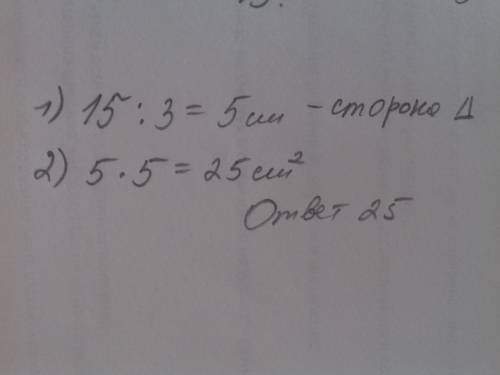 1) 15 : 3 = 5 см - сторона Δ
2) 5 · 5 = 25 см²
Ответ 25